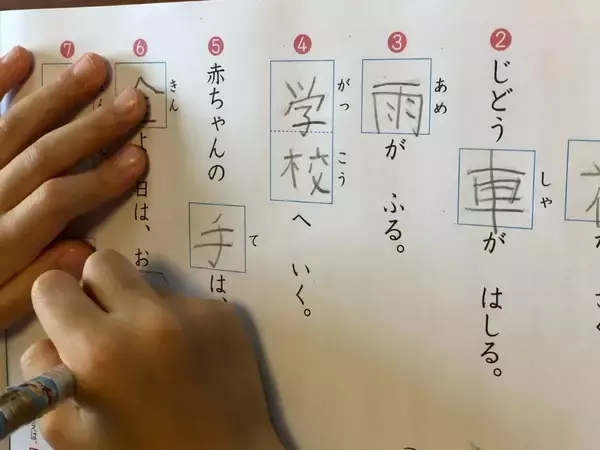 ②
じどう車が はしる。
しゃ
③
雨が ふる。
あめ
④
学校へ いく。
がっこう
⑤
赤ちゃんの 手は、
て
⑥
金よう日は、お
きん
⑦